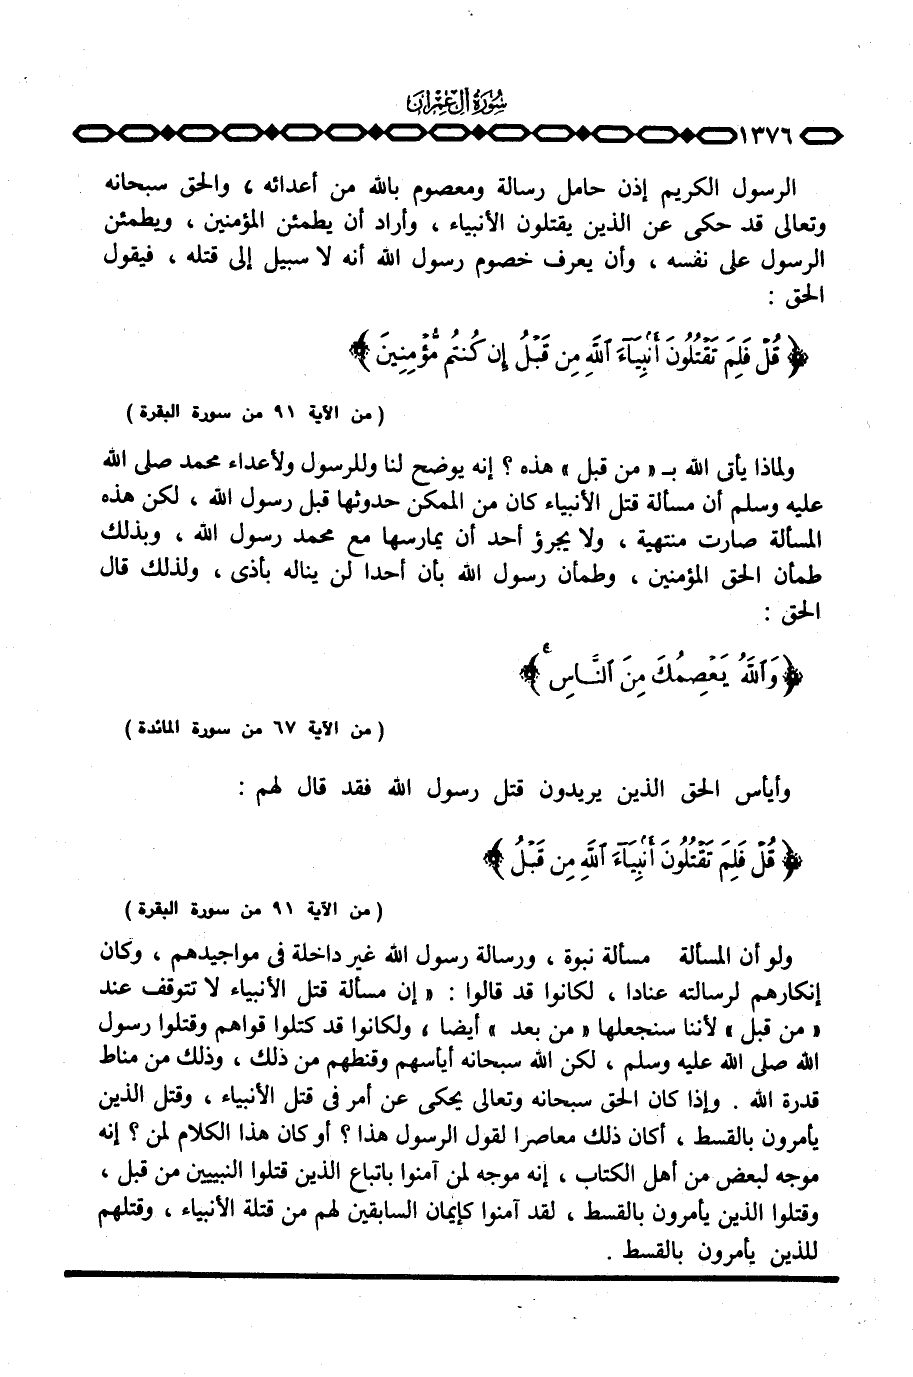 سورة آل عمران
١٣٧٦
الرسول الكريم إذن حامل رسالة ومعصوم بالله من أعدائه ، والحق سبحانه
وتعالى قد حكى عن الذين يقتلون الأنبياء ، وأراد أن يطمئن المؤمنين ، ويطمئن
الرسول على نفسه ، وأن يعرف خصوم رسول الله أنه لا سبيل إلى قتله ، فيقول
الحق :
﴿ قُلْ فَلِمَ تَقْتُلُونَ أَنۢبِيَآءَ ٱللَّهِ مِن قَبْلُ إِن كُنتُم مُّؤْمِنِينَ ﴾
( من الآية ٩١ من سورة البقرة )
ولماذا يأتى الله بـ « من قبل » هذه ؟ إنه يوضح لنا وللرسول ولأعداء محمد صلى الله
عليه وسلم أن مسألة قتل الأنبياء كان من الممكن حدوثها قبل رسول الله ، لكن هذه
المسألة صارت منتهية ، ولا يجرؤ أحد أن يمارسها مع محمد رسول الله ، وبذلك
طمأن الحق المؤمنين ، وطمأن رسول الله بأن أحدا لن يناله بأذى ، ولذلك قال
الحق :
﴿ وَٱللَّهُ يَعْصِمُكَ مِنَ ٱلنَّاسِ ۚ ﴾
( من الآية ٦٧ من سورة المائدة )
وأيأس الحق الذين يريدون قتل رسول الله فقد قال لهم :
﴿ قُلْ فَلِمَ تَقْتُلُونَ أَنۢبِيَآءَ ٱللَّهِ مِن قَبْلُ ﴾
( من الآية ٩١ من سورة البقرة )
ولو أن المسألة مسألة نبوة ، ورسالة رسول الله غير داخلة فى مواجيدهم ، وكان
إنكارهم لرسالته عنادا ، لكانوا قد قالوا : « إن مسألة قتل الأنبياء لا تتوقف عند
« من قبل » لأننا سنجعلها « من بعد » أيضا ، ولكانوا قد كتلوا قواهم وقتلوا رسول
الله صلى الله عليه وسلم ، لكن الله سبحانه أيأسهم وقنطهم من ذلك ، وذلك من مناط
قدرة الله . وإذا كان الحق سبحانه وتعالى يحكى عن أمر فى قتل الأنبياء ، وقتل الذين
يأمرون بالقسط ، أكان ذلك معاصرا لقول الرسول هذا ؟ أو كان هذا الكلام لمن ؟ إنه
موجه لبعض من أهل الكتاب ، إنه موجه لمن آمنوا باتباع الذين قتلوا النبيين من قبل ،
وقتلوا الذين يأمرون بالقسط ، لقد آمنوا كإيمان السابقين لهم من قتلة الأنبياء ، وقتلهم
للذين يأمرون بالقسط .